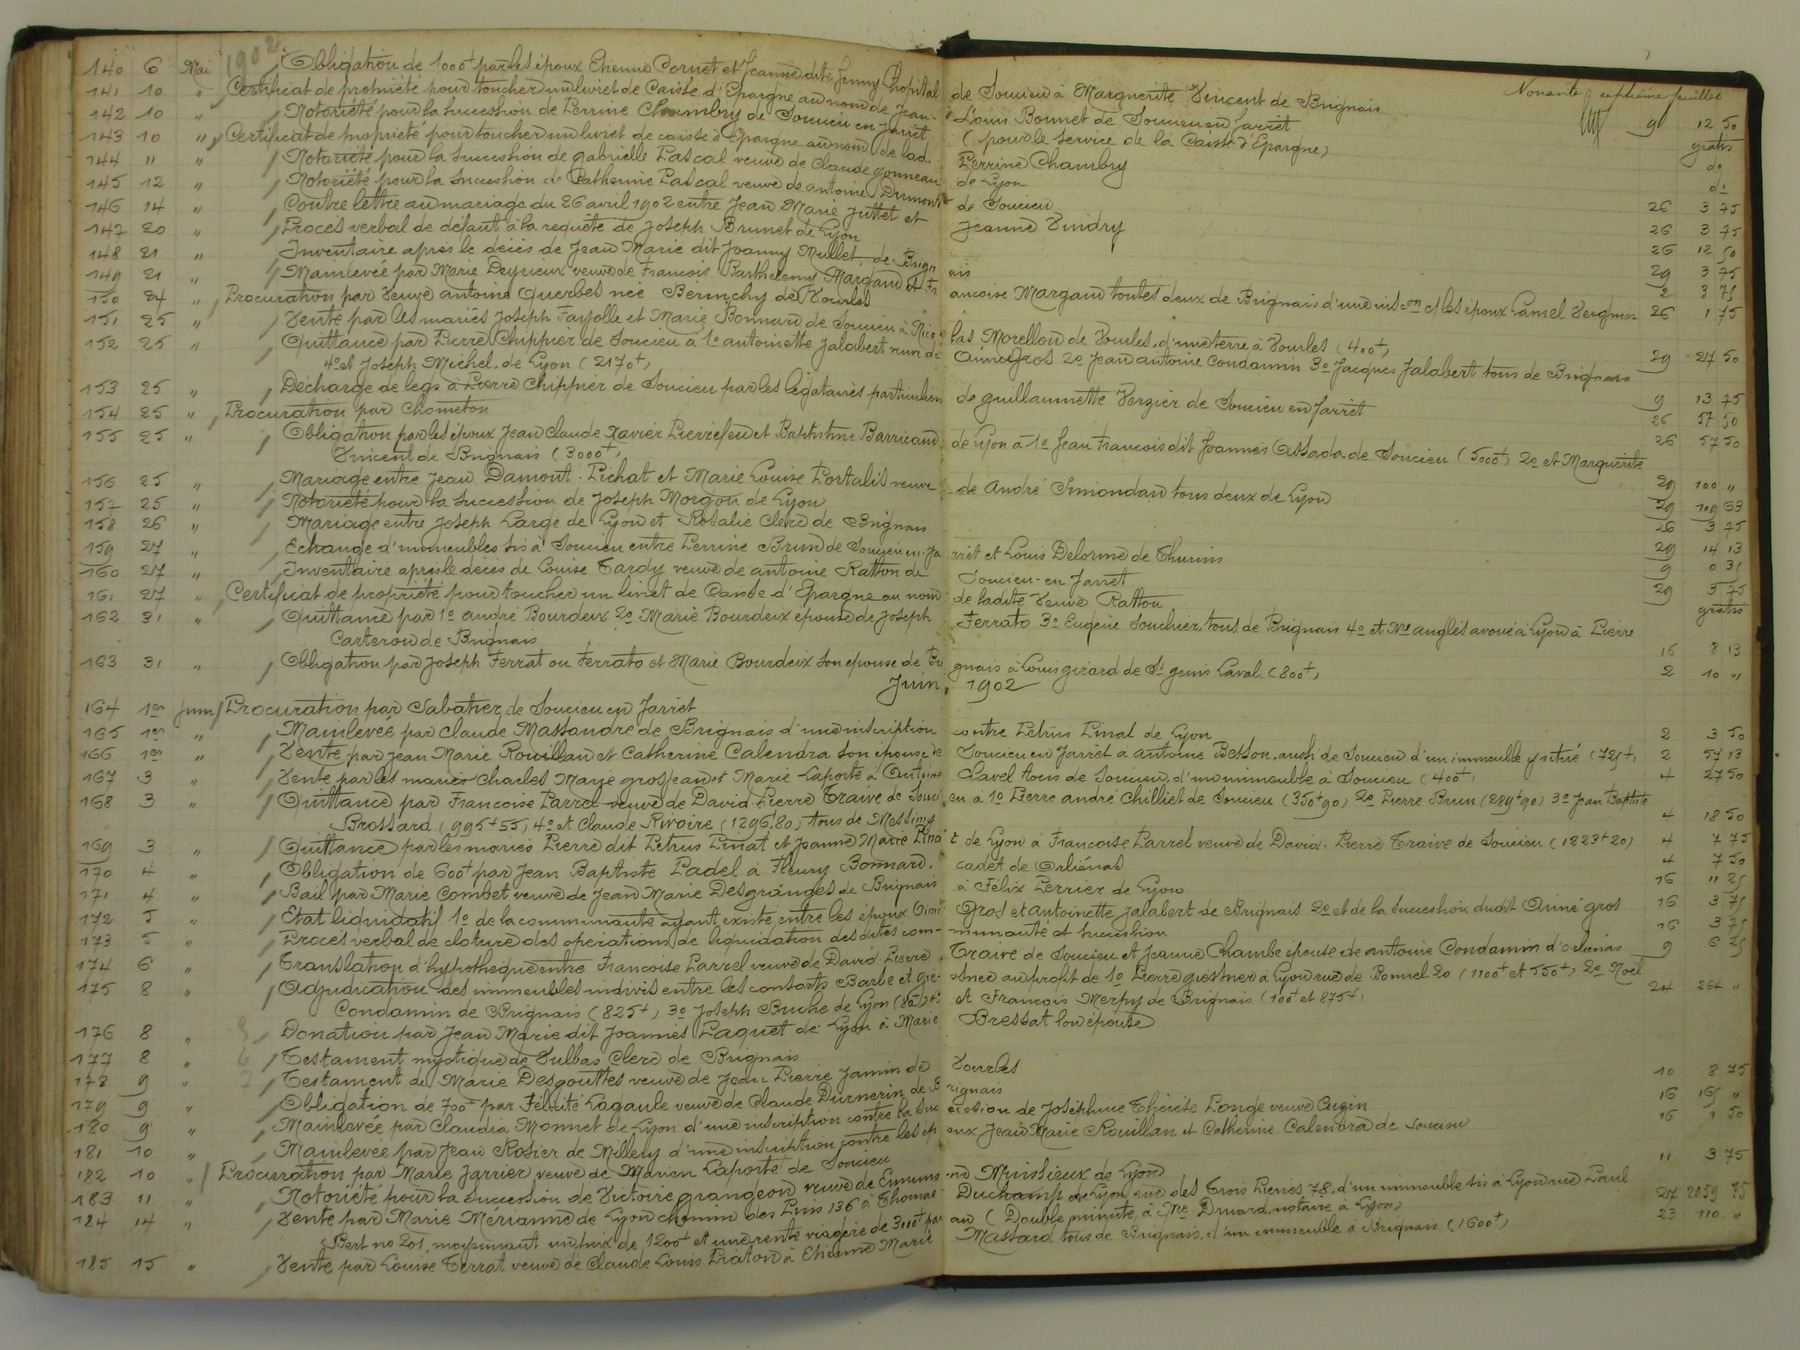 1902
Nonante septième feuillet
140 6 Mai Obligation de 1000f par les époux Etienne Cornet et Jeanne dite Jenny Chopital de Soucieu à Marguerite Vincent de Brignais 9 12 50
141 10 " Certificat de propriété pour toucher un livret de Caisse d'Epargne au nom de Jean-Louis Bonnet de Soucieu en Jarret gratis
142 10 " Notoriété pour la succession de Perrine Chambry de Soucieu en Jarret (pour le service de la Caisse d'Epargne) do
143 10 " Certificat de propriété pour toucher un livret de caisse d'Epargne au nom de lad. Perrine Chambry do
144 11 " Notoriété pour la succession de gabrielle Pascal veuve de Claude gonneau de Lyon 26 3 75
145 12 " Notoriété pour la succession de Catherine Pascal veuve de antoine Dumont de Soucieu 26 3 75
146 14 " Contre lettre au mariage du 26 avril 1902 entre Jean Marie Juttet et Jeanne Vindry 26 12 50
147 20 " Procès verbal de défaut à la requête de Joseph Brunet de Lyon 29 3 75
148 21 " Inventaire après le décès de Jean Marie dit Joanny Mullet de Brignais 2 3 75
149 21 " Mainlevée par Marie Deyrieux veuve de Francois Barthelemy Margand et Francoise Margand toutes deux de Brignais d'une insc.on c/ les époux Lamel Vergnier 26 1 75
150 24 " Procuration par Veuve antoine Querbes née Berinchy de Vourles
151 25 " Vente par les mariés Joseph Fayolle et Marie Bonnard de Soucieu à Nicolas Morellon de Vourles, d'une terre à Vourles (400f) 29 27 50
152 25 " Quittance par Pierre Chippier de Soucieu à 1o antoinette Jalabert veuve de Aimé Gros 2o Jean antoine Condamin 3o Jacques Jalabert tous de Brignais
4o et Joseph Michel, de Lyon (2170f) 9 13 75
153 25 " Décharge de legs à Pierre Chippier de Soucieu par les légataires particuliers de guillaumette Verzier de Soucieu en Jarret 26 57 50
154 25 " Procuration par Chometon 26 57 50
155 25 " Obligation par les époux Jean Claude Xavier Pierrefeu et Baptistine Barricand de Lyon à 1o Jean Francois dit Joannes Assada de Soucieu (5000f) 2o et Marguerite
Vincent de Brignais (3000f) 29 100 "
156 25 " Mariage entre Jean Damont-Pichat et Marie Louise Portalis veuve de André Simondan tous deux de Lyon 29 109 63
157 25 " Notoriété pour la succession de Joseph Morgon de Lyon 26 3 75
158 26 " Mariage entre Joseph Large de Lyon et Rosalie Clerc de Brignais 29 14 13
159 27 " Echange d'immeubles sis à Soucieu entre Perrine Brun de Soucieu en Jarret et Louis Delorme de Thurins 9 0 31
160 27 " Inventaire après le décès de Louise Tardy veuve de antoine Ratton de Soucieu-en Jarret 29 3 75
161 27 " Certificat de propriété pour toucher un livret de Caisse d'Epargne au nom de ladite Veuve Ratton gratis
162 31 " Quittance par 1o andré Bourdeix 2o Marie Bourdeix épouse de Joseph Ferrato 3o Eugène Souchier, tous de Brignais 4o et Me anglès avoué à Lyon à Pierre
Carteron de Brignais 16 8 13
163 31 " Obligation par Joseph Ferrat ou Ferrato et Marie Bourdeix son epouse de Brignais à Louis girard de St genis Laval (800f) 2 10 "
Juin 1902
164 1er Juin Procuration par Sabatier de Soucieu en Jarret
165 1er " Mainlevée par Claude Massandre de Brignais d'une inscription contre Pétrus Pinat de Lyon 2 3 50
166 1er " Vente par Jean Marie Rouillan et Catherine Calendra son épouse de Soucieu en Jarret à antoine Besson, aussi de Soucieu d'un immeuble y situé (725f) 2 57 13
167 3 " Vente par les mariés Charles Marie grosjean et Marie Laporte à Antoine Clavel tous de Soucieu, d'un immeuble à Soucieu (400f) 4 27 50
168 3 " Quittance par Francoise Parrel veuve de David Pierre Traive de Soucieu à 1o Pierre andré Chilliet de Soucieu (350f90) 2o Pierre Brun (289f90) 3o Jean Baptiste
Brossard (995f55) 4o et Claude Rivoire (1296.80) tous de Messimy 4 18 50
169 3 " Quittance par les mariés Pierre dit Petrus Pinat et Jeanne Marie Pinat de Lyon à Francoise Parrel veuve de David-Pierre Traive de Soucieu (1223f20) 4 7 75
170 4 " Obligation de 600f par Jean Baptiste Padel à Fleury Bonnard cadet de Orliénas 4 7 50
171 4 " Bail par Marie Combet veuve de Jean Marie Desgranges de Brignais à Félix Perrier de Lyon 16 " 25
172 5 " Etat liquidatif 1o de la communauté ayant existé entre les époux Aimé Gros et antoinette Jalabert de Brignais 2o et de la succession dudit Aimé gros 16 3 75
173 5 " Procès verbal de cloture des opérations de liquidation des dites communauté et succession 16 3 75
174 6 " Translation d'hypothèque entre Francoise Parrel veuve de David Pierre Traive de Soucieu et Jeanne Chambe épouse de antoine Condamin d'orliénas 9 6 25
175 8 " Adjudication des immeubles indivis entre les consorts Barbe et grostner au profit de 1o Pierre grostner à Lyon rue de Bonnel 20 (1100f et 550f) 2o Noël
Condamin de Brignais (825f) 3o Joseph Buche de Lyon 4o et Francois Merpy de Brignais (100f et 875f) 24 264 "
176 8 " Donation par Jean Marie dit Joannès Paquet de Lyon à Marie Bressat son épouse
177 8 " Testament mystique de Vulbas Clerc de Brignais
178 9 " Testament de Marie Desgouttes veuve de Jean Pierre Jamin de Vourles
179 9 " Obligation de 700f par Félicité Lagaule veuve de Claude Durnerin de Brignais 10 8 75
180 9 " Mainlevée par Claudia Monnet de Lyon d'une inscription contre la succession de Joséphine Thérèse Longe veuve Cuzin 16 165 "
181 10 " Mainlevée par Jean Rosier de Millery d'une inscription contre les époux Jean Marie Rouillan et Catherine Calendra de Soucieu 16 1 50
182 10 " Procuration par Marie Jarrier veuve de Marien Laporte de Soucieu
183 11 " Notoriété pour la succession de Victoire grangeon veuve de Muissieux de Lyon 11 3 75
184 14 " Vente par Marie Mérianne de Lyon chemin des Pins 136 à Thomas Duchamp de Lyon rue des Trois Pierres 78, d'un immeuble sis à Lyon rue Paul
Bert no 201, moyennant un prix de 1200f et une rente viagère de 3000f par an (Double minute à Me Druard notaire à Lyon) 27 2059 75
185 15 " Vente par Louise Ferrat veuve de Claude Louis Piaton à Etienne Marie Massard tous de Brignais, d'un immeuble à Brignais (1600f) 23 110 "